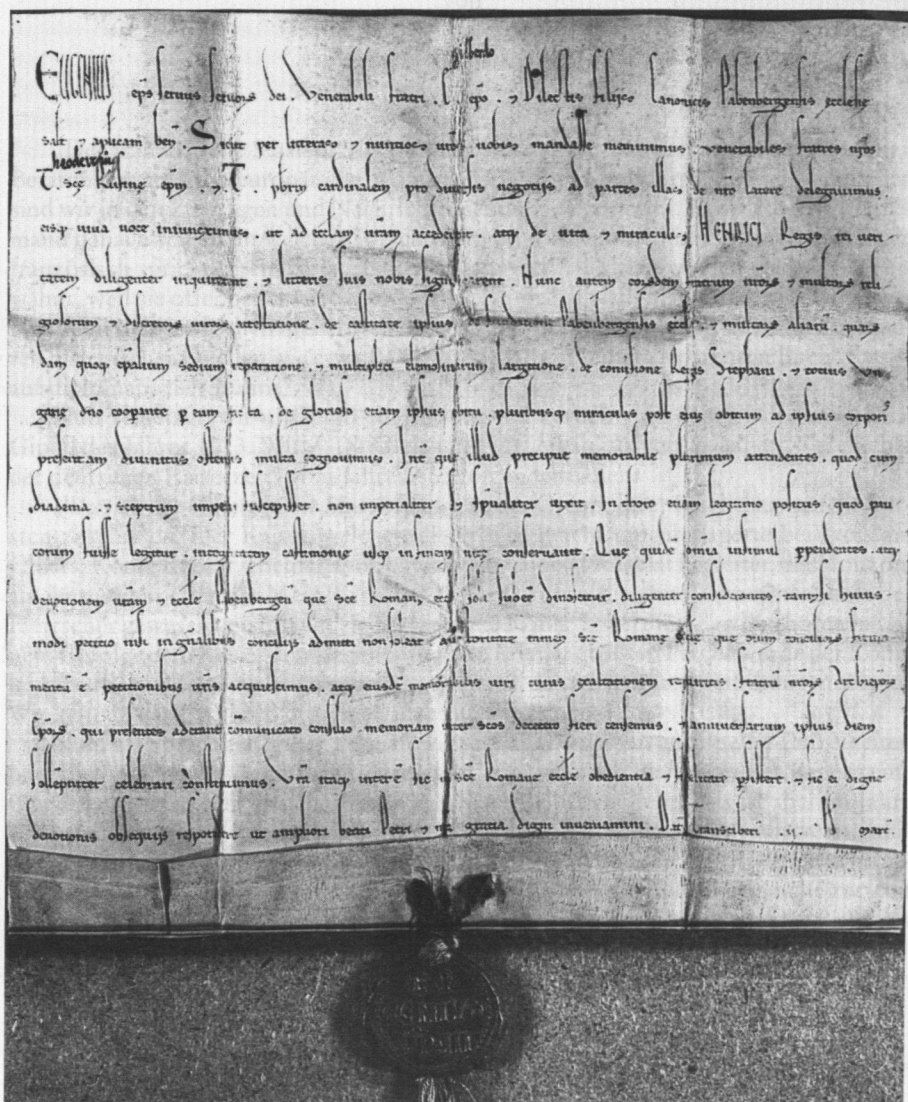 gilberto
EUGENIUS ep̄s seruus seruoꝝ dei. Venerabili fratri. E. ep̄o. ⁊ Dilectis filijs Canonicis Babenbergensis ecclesie
salt̄ ⁊ aplicam ben̄. Sicut per litteras ⁊ nuntios ur̄os uobis mandasse meminimus. uenerabiles fratres nr̄os
heodewinus
T. scē Rufine ep̄m. ⁊ T. pbr̄m cardinalem pro diuersis negotijs ad partes illas de nr̄o latere delegauimus.
eisq; uiua uoce iniunximus. ut ad eccl̄am ur̄am accederent. atq; de uita ⁊ miraculis HENRICI Regis rei ueri-
tatem diligenter inquirerent. ⁊ litteris suis nobis significarent. Nunc autem eorundem fratrum nr̄oꝝ ⁊ multoꝝ reli
giosorum ⁊ discretoꝝ uiroꝝ attestatione. de castitate ipsius. de fundatione Babenbergensis eccl̄e. ⁊ multaꝝ aliarū. quarū
dam quoq; ep̄alium sedium reparatione. ⁊ multiplici elemosinarum largitione. de conuersione Regis Stephani. ⁊ totius Vn
garie dn̄o cooperante p̱ eum facta. de glorioso etiam ipsius obitu. pluribusq; miraculis post eius obitum ad ipsius corporis
presentiam diuinitus ostensis multa cognouimus. Int̄ que illud precipue memorabile plurimum attendentes. quod cum
diadema. ⁊ sceptrum imperij suscepisset. non imperialiter. sꝫ sp̄ualiter uixit. In thoro etiam legitimo positus. quod pau
corum fuisse legitur. integritatem castimonie usq; in finem uite conseruauit. Que quidē om̄ia insimul p̱pendentes. atq;
deuotionem ur̄am ⁊ eccl̄e Babenbergen̄ que scē Romane eccl̄e soli subee͞ dinoscitur. diligenter considerantes. tametsi huius-
modi petitio nisi in gn̄alibus concilijs admitti non soleat. auctoritate tamen scē Romane eccl̄e que om̄ium concilioꝝ firma
mentū ē. petitionibus ur̄is acquiescimus. atq; eiusdē memorabilis uiri cuius exaltationem requiritis. fratrū nr̄oꝝ Archiep̄oꝝ
Ep̄oꝝ. qui presentes aderant cōmunicato consilio. memoriam inter scōs de cetero fieri censemus. ⁊ anniuersarium ipsius diem
sollēpniter celebrari constituimus. Vr̄a itaq; interē sic in scē Romane eccl̄e obedientia ⁊ fidelitate p̱sistere. ⁊ sic ei digne
deuotionis obsequijs respondere. ut ampliori beati Petri ⁊ nr̄a gratia digni inueniamini. Dat̄ Transtiberī. .ij. Id̄ marc̄.